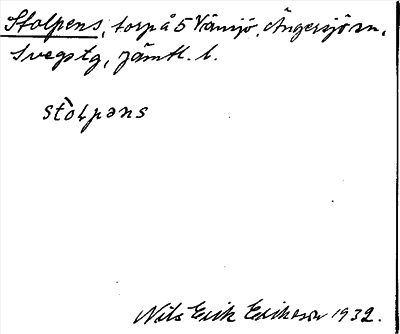 Stolpens, torp å 5 Vänsjö, Ängersjö sn,
Svegs tg, Jämtl. l.
stòlpəns
Nils Erik Eriksson 1932.